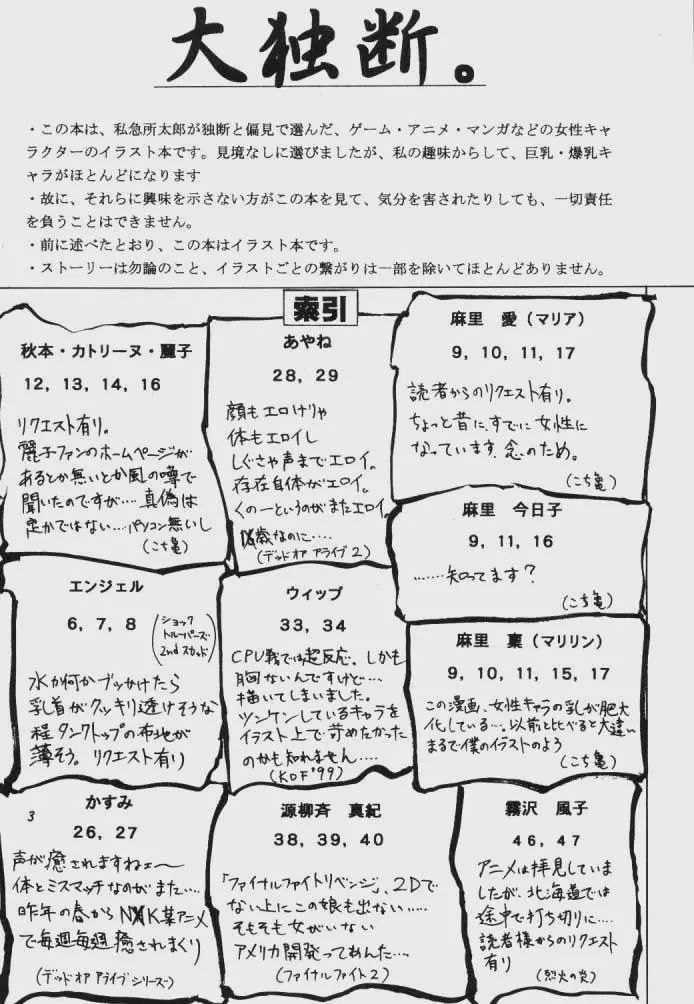 大独断。
・この本は、私急所太郎が独断と偏見で選んだ、ゲーム・アニメ・マンガなどの女性キャ
ラクターのイラスト本です。見境なしに選びましたが、私の趣味からして、巨乳・爆乳キ
ャラがほとんどになります
・故に、それらに興味を示さない方がこの本を見て、気分を害されたりしても、一切責任
を負うことはできません。
・前に述べたとおり、この本はイラスト本です。
・ストーリーは勿論のこと、イラストごとの繋がりは一部を除いてほとんどありません。
索引
秋本・カトリーヌ・麗子
12, 13, 14, 16
リクエスト有り。
麗子ファンのホームページが
あるとか無いとか風の噂で
聞いたのですが…. 真偽は
定かではない… パソコン無いし
(こち亀)
あやね
28, 29
顔もエロけりゃ
体もエロイし
しぐさや声までエロイ。
存在自体がエロイ。
くの一というのがまたエロイ。
歳なのに….
(デッド オア アライブ2)
麻里 愛(マリア)
9, 10, 11, 17
読者からのリクエスト有り。
ちょっと昔に、すでに女性に
なっています。念のため。
(こち亀)
麻里 今日子
9, 11, 16
……. 知ってます?
(こち亀)
エンジェル
6, 7, 8
(ショック
トルーパーズ
2nd スカッド)
水か何かブッかけたら
乳首がクッキリ透けそうな
程タンクトップの布地が
薄そう。リクエスト有り
ウィップ
33, 34
CPU戦では超反応、しかも
胸ないんですけど…
描いてしまいました。
ツンケンしているキャラを
イラスト上で苛めたかった
のかも知れません….
(KOF '99)
麻里 稟(マリリン)
9, 10, 11, 15, 17
この漫画、女性キャラの乳が肥大
化している…。以前と比べると大違い
まるで僕のイラストのよう
(こち亀)
3
かすみ
26, 27
声が癒されますねェ〜
体とミスマッチなのがまた….
昨年の春からNXK某アニメ
で毎週毎週癒されまくり
(デッド オア アライブ シリーズ)
源柳斉 真紀
38, 39, 40
「ファイナルファイトリベンジ」、2Dで
ない上にこの娘も出ない…..
そもそも女がいない
アメリカ開発ってあんた….
(ファイナルファイト2)
霧沢 風子
46, 47
アニメは拝見していま
したが、北海道では
途中で打ち切りに….
読者様からのリクエスト
有り
(烈火の炎)